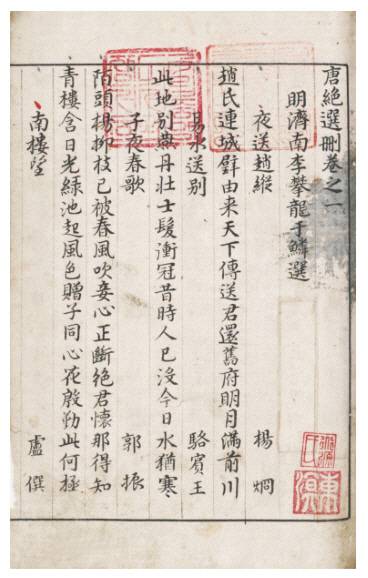 唐絕選刪卷之一
明濟南李攀龍于鱗選
夜送趙縱 楊烱
趙氏連城璧由来天下傳送君還舊府明月滿前川
易水送別 駱賓王
此地別燕丹壯士髮衝冠昔時人已沒今日水猶寒
子夜春歌 郭振
陌頭楊柳枝已被春風吹妾心正斷絕君懷那得知
青樓含日光綠池起風色贈子同心花殷勤此何極
南樓望 盧僎